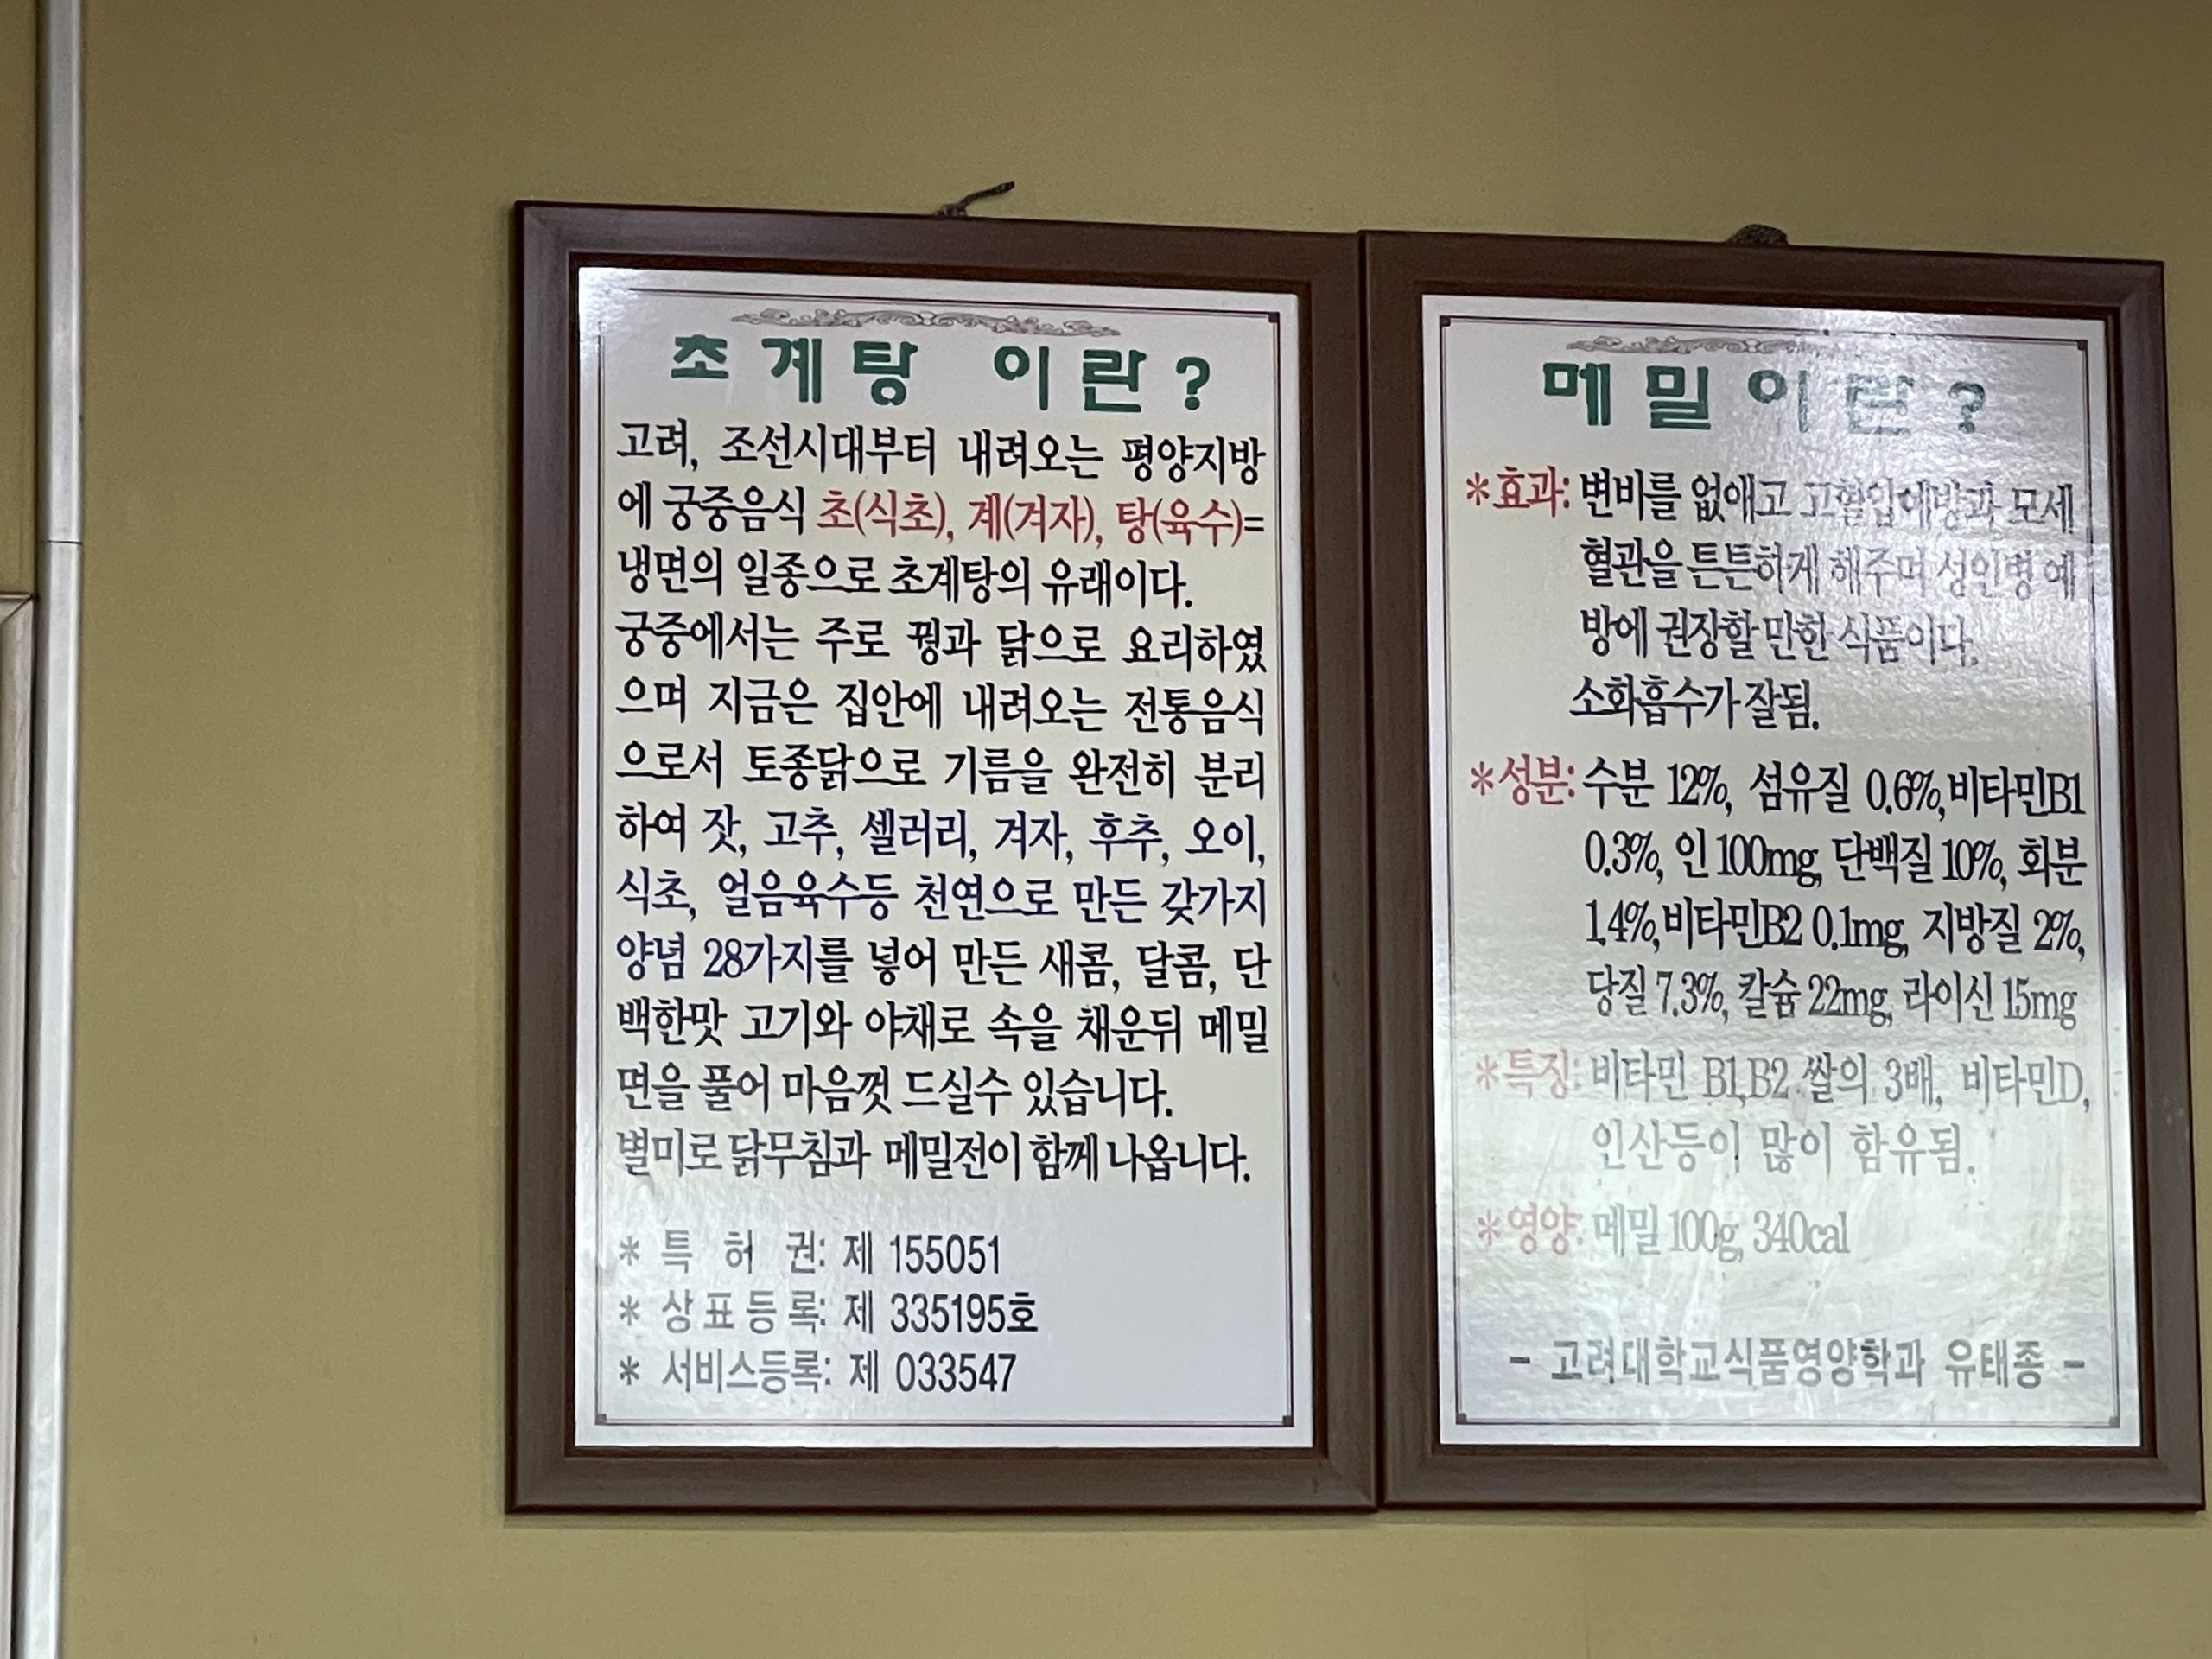 초계탕 이란?
고려, 조선시대부터 내려오는 평양지방
에 궁중음식 초(식초), 계(겨자), 탕(육수)=
냉면의 일종으로 초계탕의 유래이다.
궁중에서는 주로 꿩과 닭으로 요리하였
으며 지금은 집안에 내려오는 전통음식
으로서 토종닭으로 기름을 완전히 분리
하여 잣, 고추, 셀러리, 겨자, 후추, 오이,
식초, 얼음육수등 천연으로 만든 갖가지
양념 28가지를 넣어 만든 새콤, 달콤, 단
백한맛 고기와 야채로 속을 채운뒤 메밀
면을 풀어 마음껏 드실수 있습니다.
별미로 닭무침과 메밀전이 함께 나옵니다.
* 특 허 권: 제 155051
* 상표등록: 제 335195호
* 서비스등록: 제 033547
메밀이란?
*효과: 변비를 없애고 고혈압예방과 모세
혈관을 튼튼하게 해주며 성인병 예
방에 권장할 만한 식품이다.
소화흡수가 잘됨.
*성분: 수분 12%, 섬유질 0.6%, 비타민B1
0.3%, 인 100mg, 단백질 10%, 회분
1.4%, 비타민B2 0.1mg, 지방질 2%,
당질 7.3%, 칼슘 22mg, 라이신 15mg
*특징: 비타민 B1,B2 쌀의 3배, 비타민D,
인산등이 많이 함유됨.
*영양: 메밀 100g, 340cal
- 고려대학교식품영양학과 유태종 -